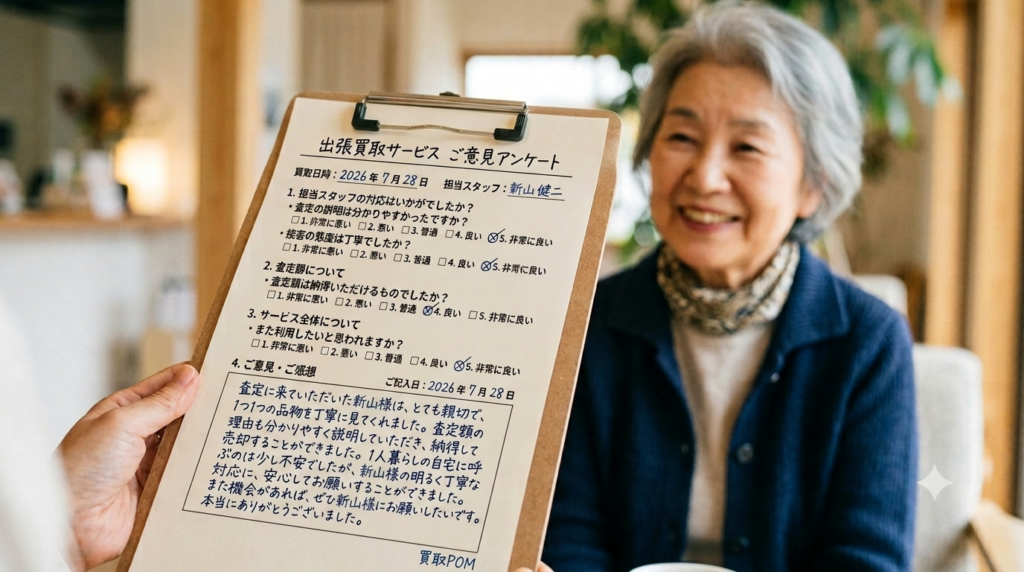 出張買取サービス ご意見アンケート
買取日時：2026年7月28日 担当スタッフ：新山 健二
1. 担当スタッフの対応はいかがでしたか？
・査定の説明は分かりやすかったですか？
□1. 非常に悪い □2. 悪い □3. 普通 □4. 良い ☒5. 非常に良い
・接客の態度は丁寧でしたか？
□1. 非常に悪い □2. 悪い □3. 普通 □4. 良い ☒5. 非常に良い
2. 査定額について
・査定額は納得いただけるものでしたか？
□1. 非常に悪い □2. 悪い □3. 普通 ☒4. 良い □5. 非常に良い
3. サービス全体について
・また利用したいと思われますか？
□1. 非常に悪い □2. 悪い □3. 普通 □4. 良い ☒5. 非常に良い
4. ご意見・ご感想
ご記入日：2026年7月28日
査定に来ていただいた新山様は、とても親切で、
1つ1つの品物を丁寧に見てくれました。査定額の
理由も分かりやすく説明していただき、納得して
売却することができました。1人暮らしの自宅に呼
ぶのは少し不安でしたが、新山様の明るく丁寧な
対応に、安心してお願いすることができました。
また機会があれば、ぜひ新山様にお願いしたいです。
本当にありがとうございました。
買取POM